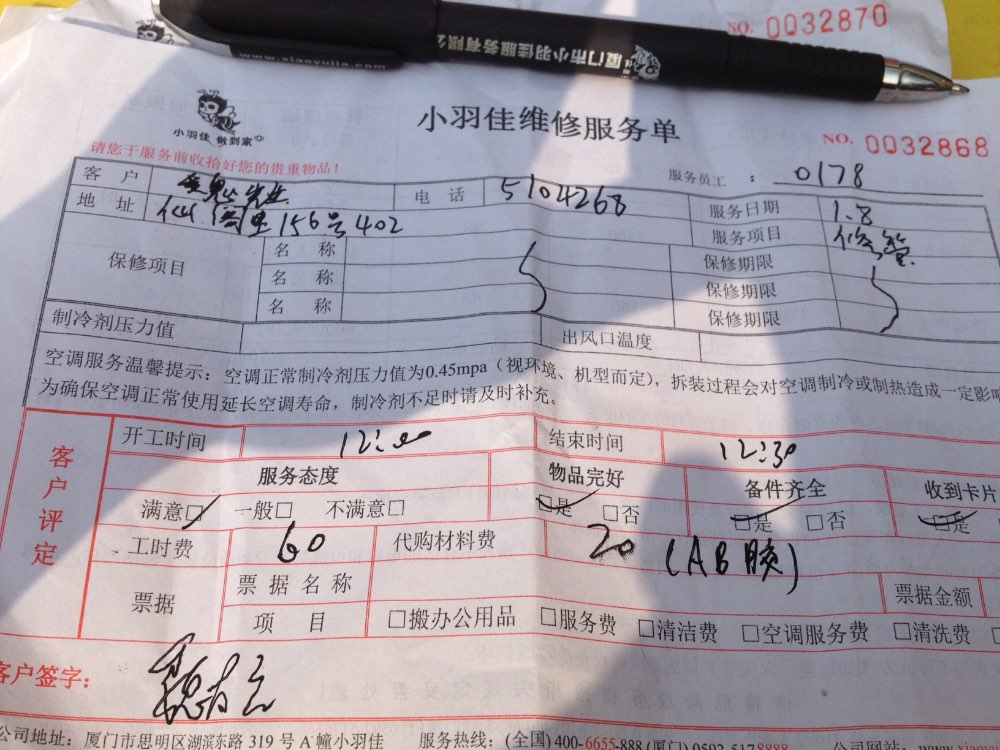 NO. 0032870
www.xiaoyujia.com
厦门市小羽佳服务有限公
小羽佳 做到家
小羽佳维修服务单
NO. 0032868
请您于服务前收拾好您的贵重物品！
服务员工 ： 0178
客 户 先生 电 话 5104268 服务日期 1.8
地 址 仙阁里156号402 服务项目 修管
保修项目 名 称 保修期限
名 称 保修期限
名 称 保修期限
制冷剂压力值 出风口温度
空调服务温馨提示：空调正常制冷剂压力值为0.45mpa（视环境、机型而定），拆装过程会对空调制冷或制热造成一定影
为确保空调正常使用延长空调寿命，制冷剂不足时请及时补充。
客户评定
开工时间 12:00 结束时间 12:30
服务态度 物品完好 备件齐全 收到卡片
满意□ 一般□ 不满意□ □是 □否 □是 □否 □是
工时费 60 代购材料费 20 (AB胶)
票据 票据名称 票据金额
项 目 □搬办公用品 □服务费 □清洁费 □空调服务费 □清洗费
客户签字：
公司地址：厦门市思明区湖滨东路 319 号 A 幢小羽佳 服务热线：(全国) 400-6655-888 (厦门) 0592-5178888 公司网站：